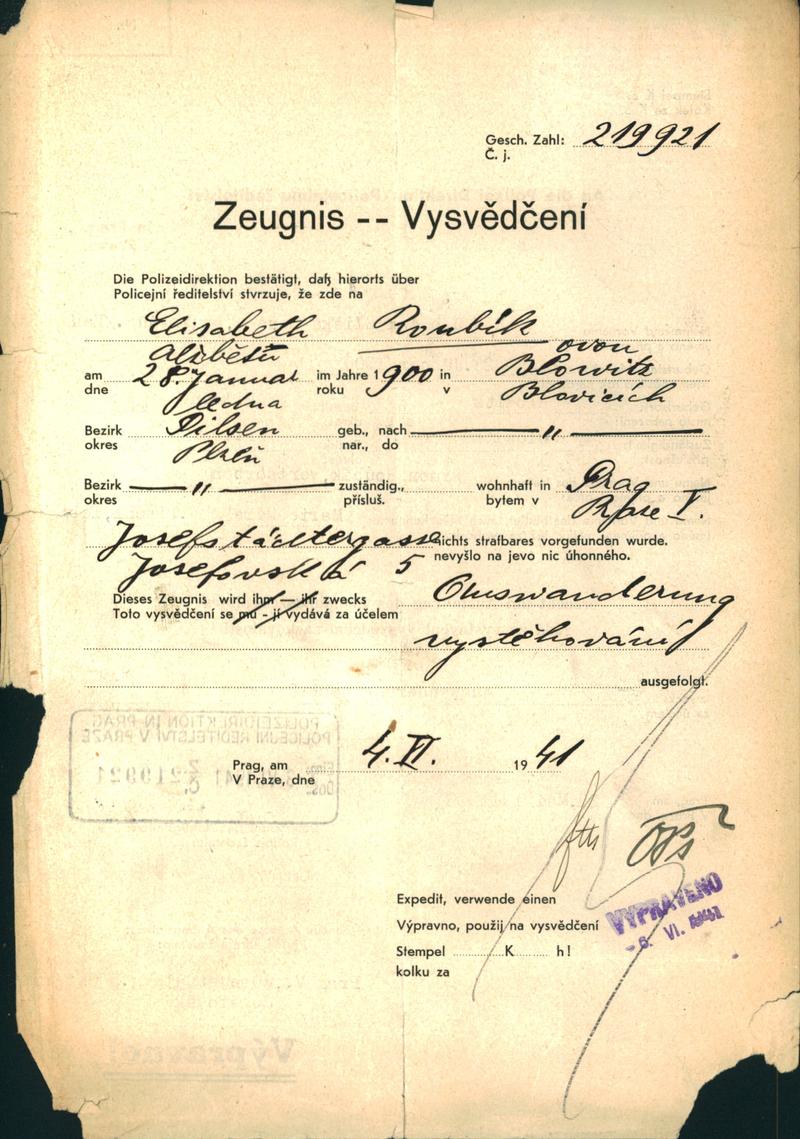 Gesch. Zahl: 219921
Č. j.
Zeugnis -- Vysvědčení
Die Polizeidirektion bestätigt, daß hierorts über
Policejní ředitelství stvrzuje, že zde na
Elisabeth Roubík
Alžbětu ovou
am 28. Januar im Jahre 1900 in Blowitz
dne ledna roku v Blovicích
Bezirk Pilsen geb., nach — " —
okres Plzeň nar., do
Bezirk — " — zuständig., wohnhaft in Prag
okres přísluš. bytem v Praze V.
Josefstädtergasse nichts strafbares vorgefunden wurde.
Josefovská 5 nevyšlo na jevo nic úhonného.
Dieses Zeugnis wird ihm — ihr zwecks Auswanderung
Toto vysvědčení se mu - jí vydává za účelem
vystěhování
ausgefolgt.
POLIZEIDIREKTION IN PRAG
POLICEJNÍ ŘEDITELSTVÍ V PRAZE
219921
Prag, am 4. VI. 1941
V Praze, dne
Expedit, verwende einen
Výpravno, použij na vysvědčení
VYPRAVENO
-6. VI. 1941
Stempel K h!
kolku za
Výpravne!